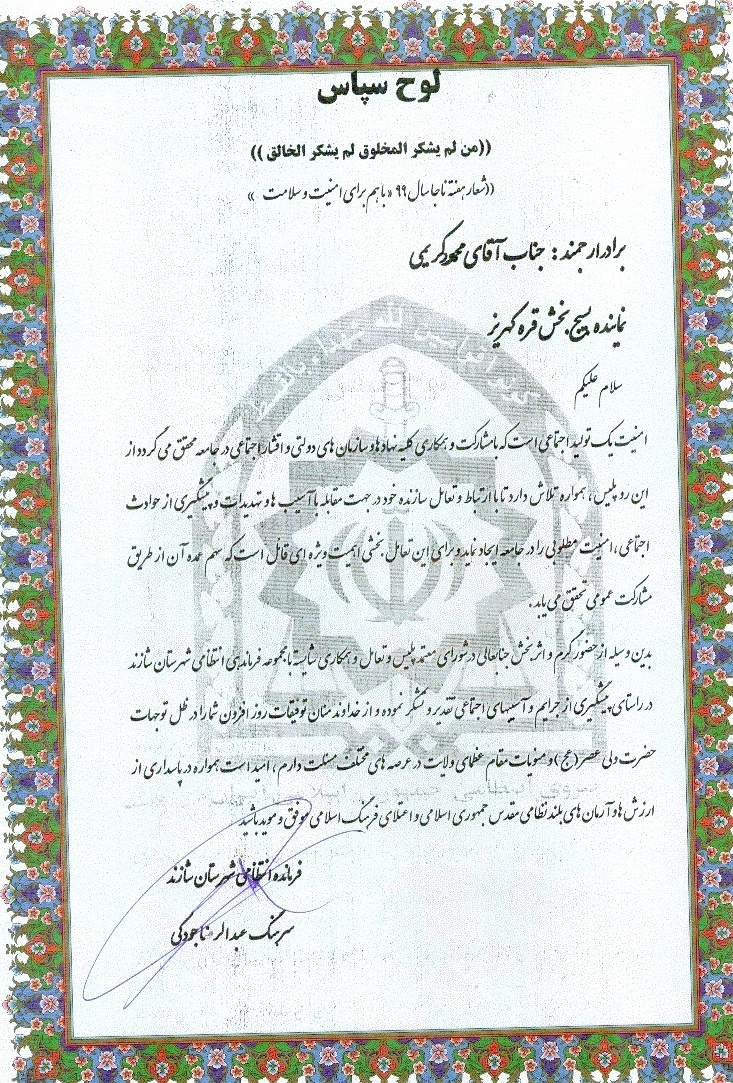 لوح سپاس
((من لم یشکر المخلوق لم یشکر الخالق ))
((شعار هفته ناجا سال ۹۹ « باهم برای امنیت و سلامت »
برادر ارجمند : جناب آقای محمود کریمی
نماینده بسیج بخش قره کهریز
سلام علیکم
امنیت یک تولید اجتماعی است که با مشارکت و همکاری کلیه نهادها و سازمان های دولتی و اقشار اجتماعی در جامعه محقق می گردد از
این رو پلیس ، همواره تلاش دارد تا با ارتباط و تعامل سازنده خود در جهت مقابله با آسیب ها و تهدیدات و پیشگیری از حوادث
اجتماعی ، امنیت مطلوبی را در جامعه ایجاد نماید و برای این تعامل بخشی اهمیت ویژه ای قائل است که سهم عمده آن از طریق
مشارکت عمومی تحقق می یابد .
بدین وسیله از حضور گرم و اثربخش جنابعالی در شورای معتمد پلیس و تعامل و همکاری شایسته با مجموعه فرماندهی انتظامی شهرستان شازند
در راستای پیشگیری از جرایم و آسیبهای اجتماعی تقدیر و تشکر نموده و از خداوند منان توفیقات روز افزون شما را در ظل توجهات
حضرت ولی عصر (عج) و منویات مقام عظمای ولایت در عرصه های مختلف مسئلت دارم ، امید است همواره در پاسداری از
ارزش ها و آرمان های بلند نظامی مقدس جمهوری اسلامی و اعتلای فرهنگ اسلامی موفق و موید باشید
فرمانده انتظامی شهرستان شازند
سرهنگ عبدالرضا جودکی
کونوا قوامین لله شهداء بالقسط
نیروی انتظامی جمهوری اسلامی ایران